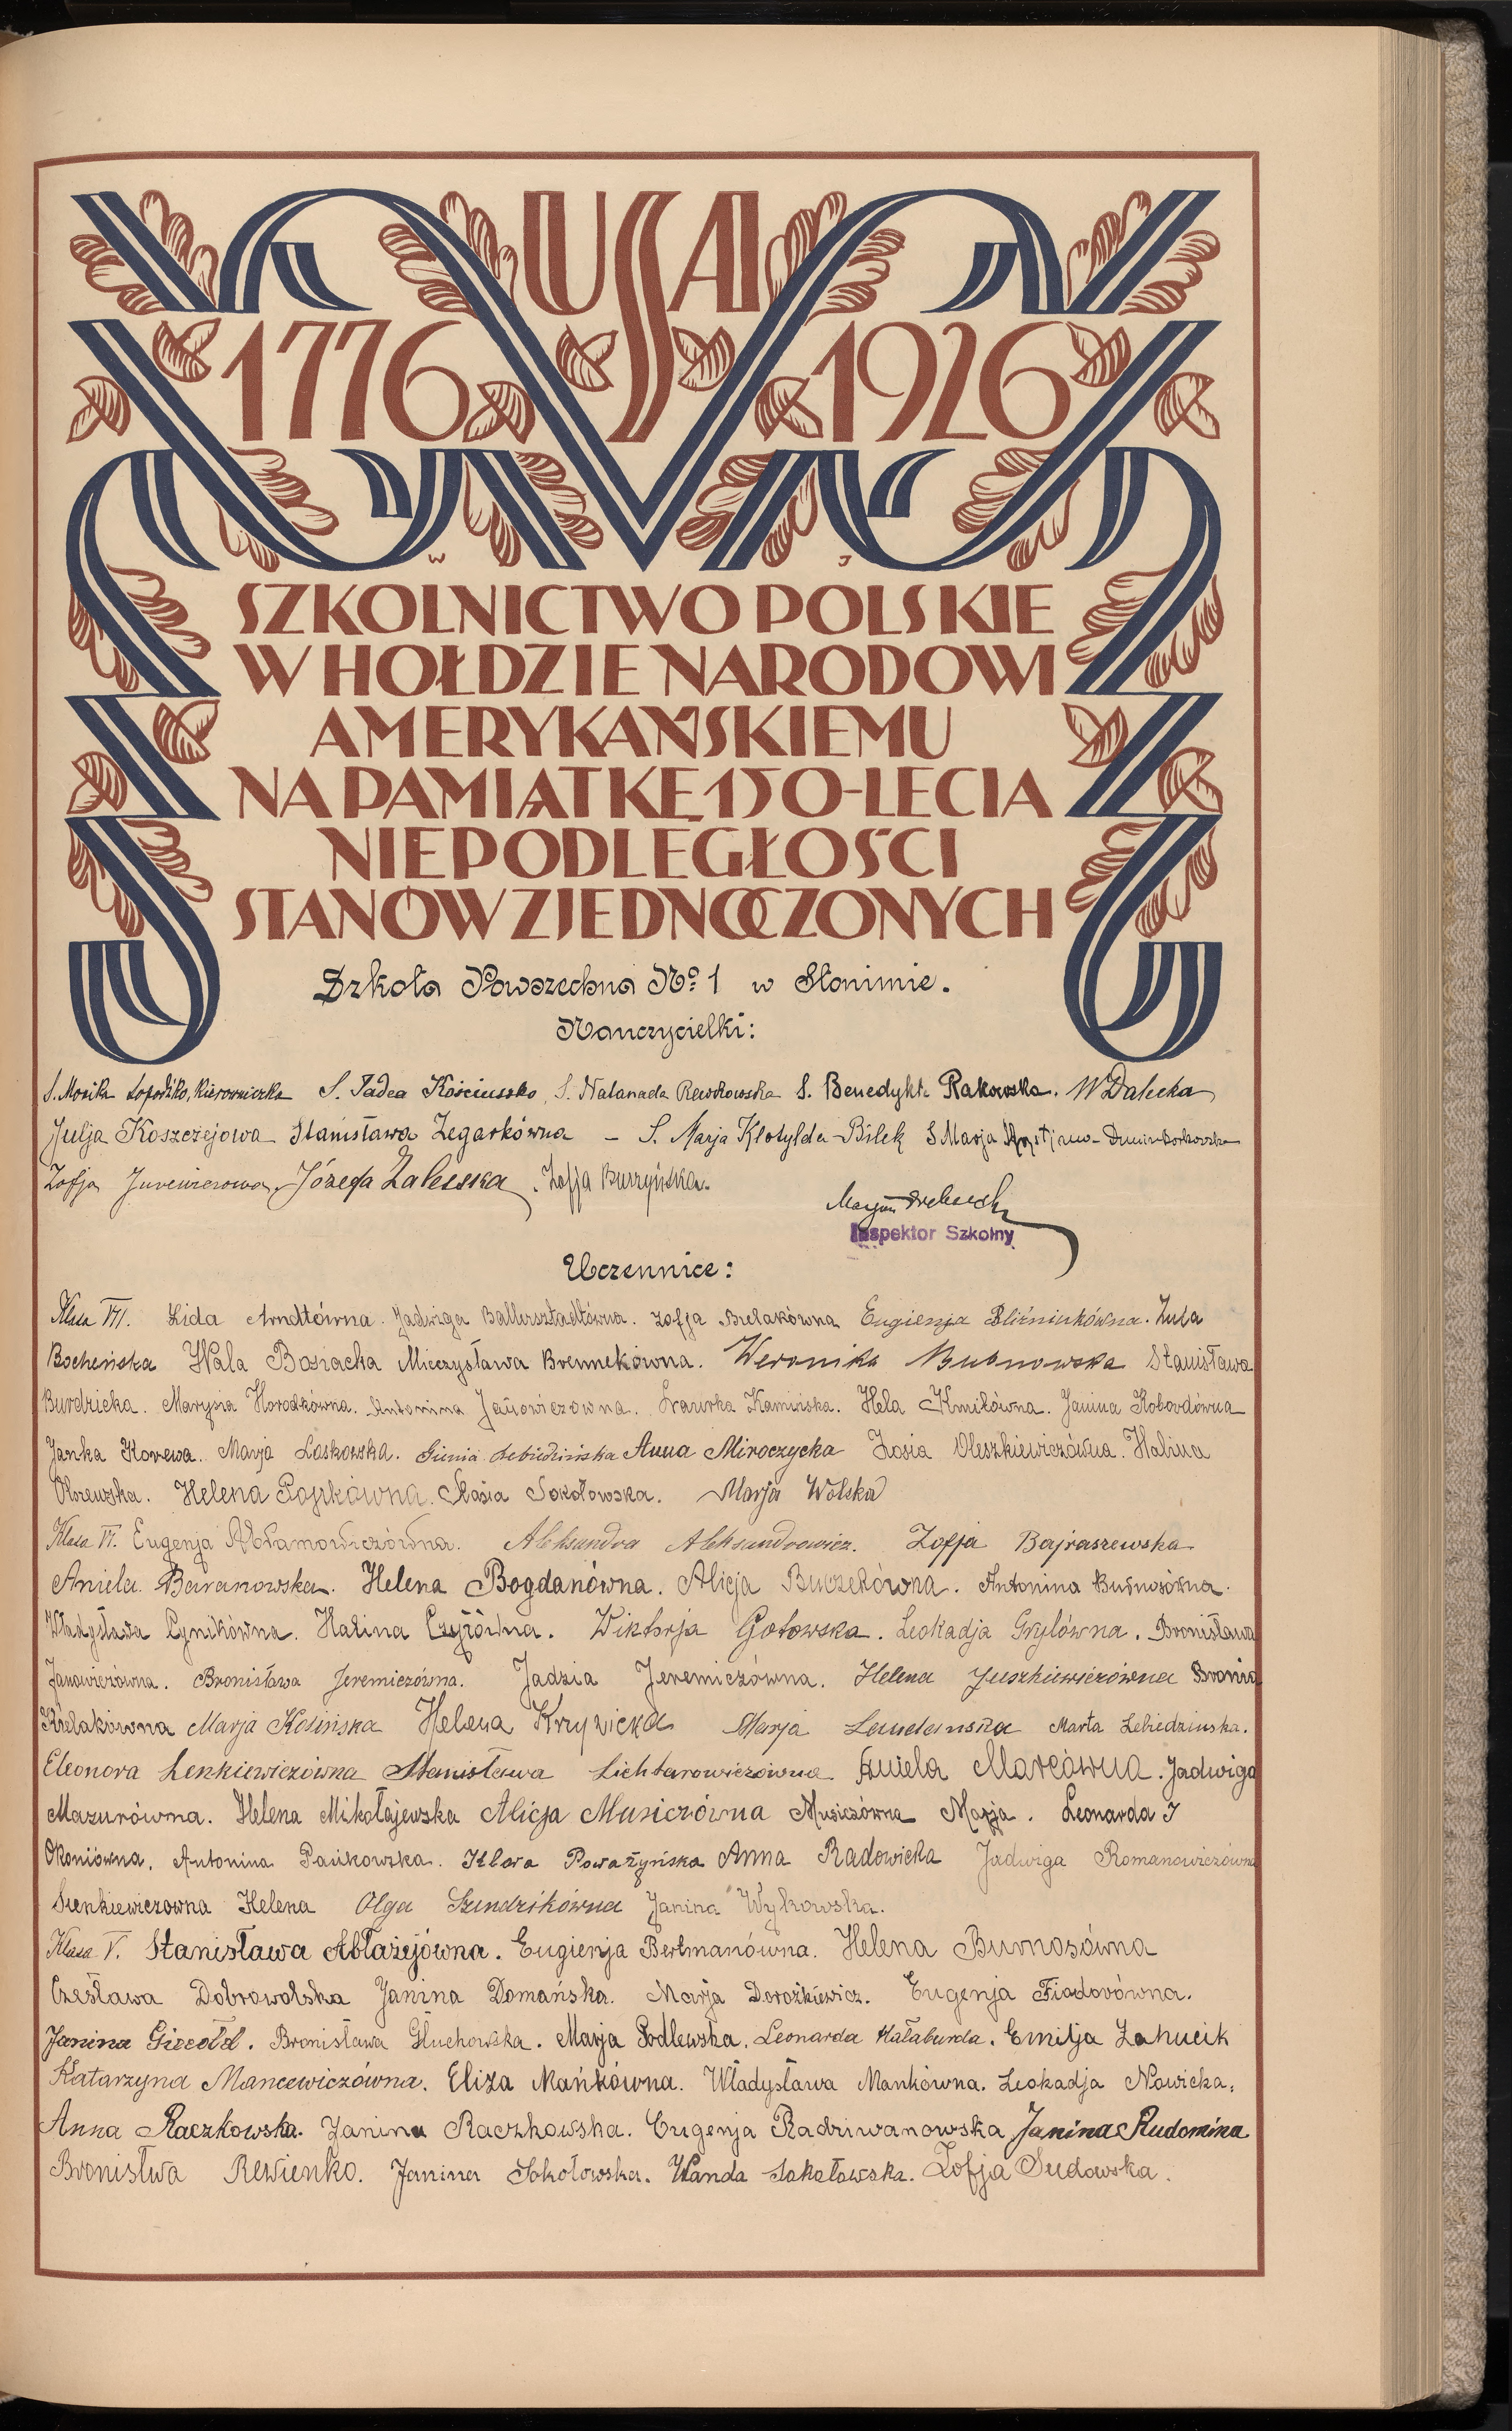 USA
1776 1926
W J
SZKOLNICTWO POLSKIE
W HOŁDZIE NARODOWI
AMERYKAŃSKIEMU
NA PAMIĄTKĘ 150-LECIA
NIEPODLEGŁOŚCI
STANÓW ZJEDNOCZONYCH
Szkoła Powszechna No 1 w Słonimie.
Nauczycielki:
S. Monika Kierowniczka S. Tadea Kościuszko, S. Natanada Rewkowska S. Benedykta Rakowska. W Dalecka
Julja Koszczejowa Stanisława Zegarkówna – S. Marja Klotylda Bilek S Marja
Zofja Jurewiczowa, Józefa Zaleska. Zofja Burzyńska.
Marjan
Inspektor Szkolny
Uczennice:
Klasa VII. Lida Arndtówna. Jadwiga Ballersztadtówna. Zofja Bielakówna Eugienja Bliźniukówna. Zula
Bocheńska Wala Bosiacka Mieczysława Brennekówna. Weronika Bubnowska Stanisława
Burdzicka. Marysia Horodkówna. Antonina Janowiczówna. Kamińska. Hela Kmitówna. Janina Kobordówna
Janka Korewa. Marja Laskowska. Gienia Lebiedzińska Anna Miroczycka Zosia Oleszkiewiczówna. Halina
Olszewska. Helena Popkówna. Stasia Sokołowska. Marja Wolska
Klasa VI. Eugenja Abramowiczówna. Aleksandra Aleksandrowicz. Zofja Bajraszewska
Aniela Baranowska. Helena Bogdanówna. Alicja Buczekówna. Antonina Burnosówna.
Władysława Cynikówna. Halina Czyżówna. Wiktorja Gotowska. Leokadja Grylówna. Bronisława
Janowiczówna. Bronisława Jeremiczówna. Jadzia Jeremiczówna. Helena Juszkiewiczówna Bronia
Kielakówna Marja Kolińska Helena Krzywicka Marja Laudańska Marta Lebiedzinska.
Eleonora Lenkiewiczówna Stanisława Lichtarowiczówna Aniela Marcówna. Jadwiga
Mazurówna. Helena Mikołajewska Alicja Musiczówna Musiczówna Marja. Leonarda J
Okoniówna. Antonina Pańkowska. Klara Poważyńska Anna Radowicka Jadwiga Romanowiczówna
Sienkiewiczowna Helena Olga Szundzikówna Janina Wykowska.
Klasa V. Stanisława Abłażejówna. Eugienja Bertmanówna. Helena Burnosówna
Czesława Dobrowolska Janina Domańska. Marja Dorożkiewicz. Eugenja Fiadorówna.
Janina Giecołd. Bronisława Głuchowska. Marja Podlewska. Leonarda Hałaburda. Emilja Łahucik
Katarzyna Mancewiczówna. Eliza Mańkówna. Władysława Mankówna. Leokadja Nowicka,
Anna Raczkowska. Janina Raczkowska. Eugenja Radziwanowska Janina Rudomina
Bronistwa Rewienko. Janina Sokołowska. Wanda Sokołowska. Zofja Sudowska.